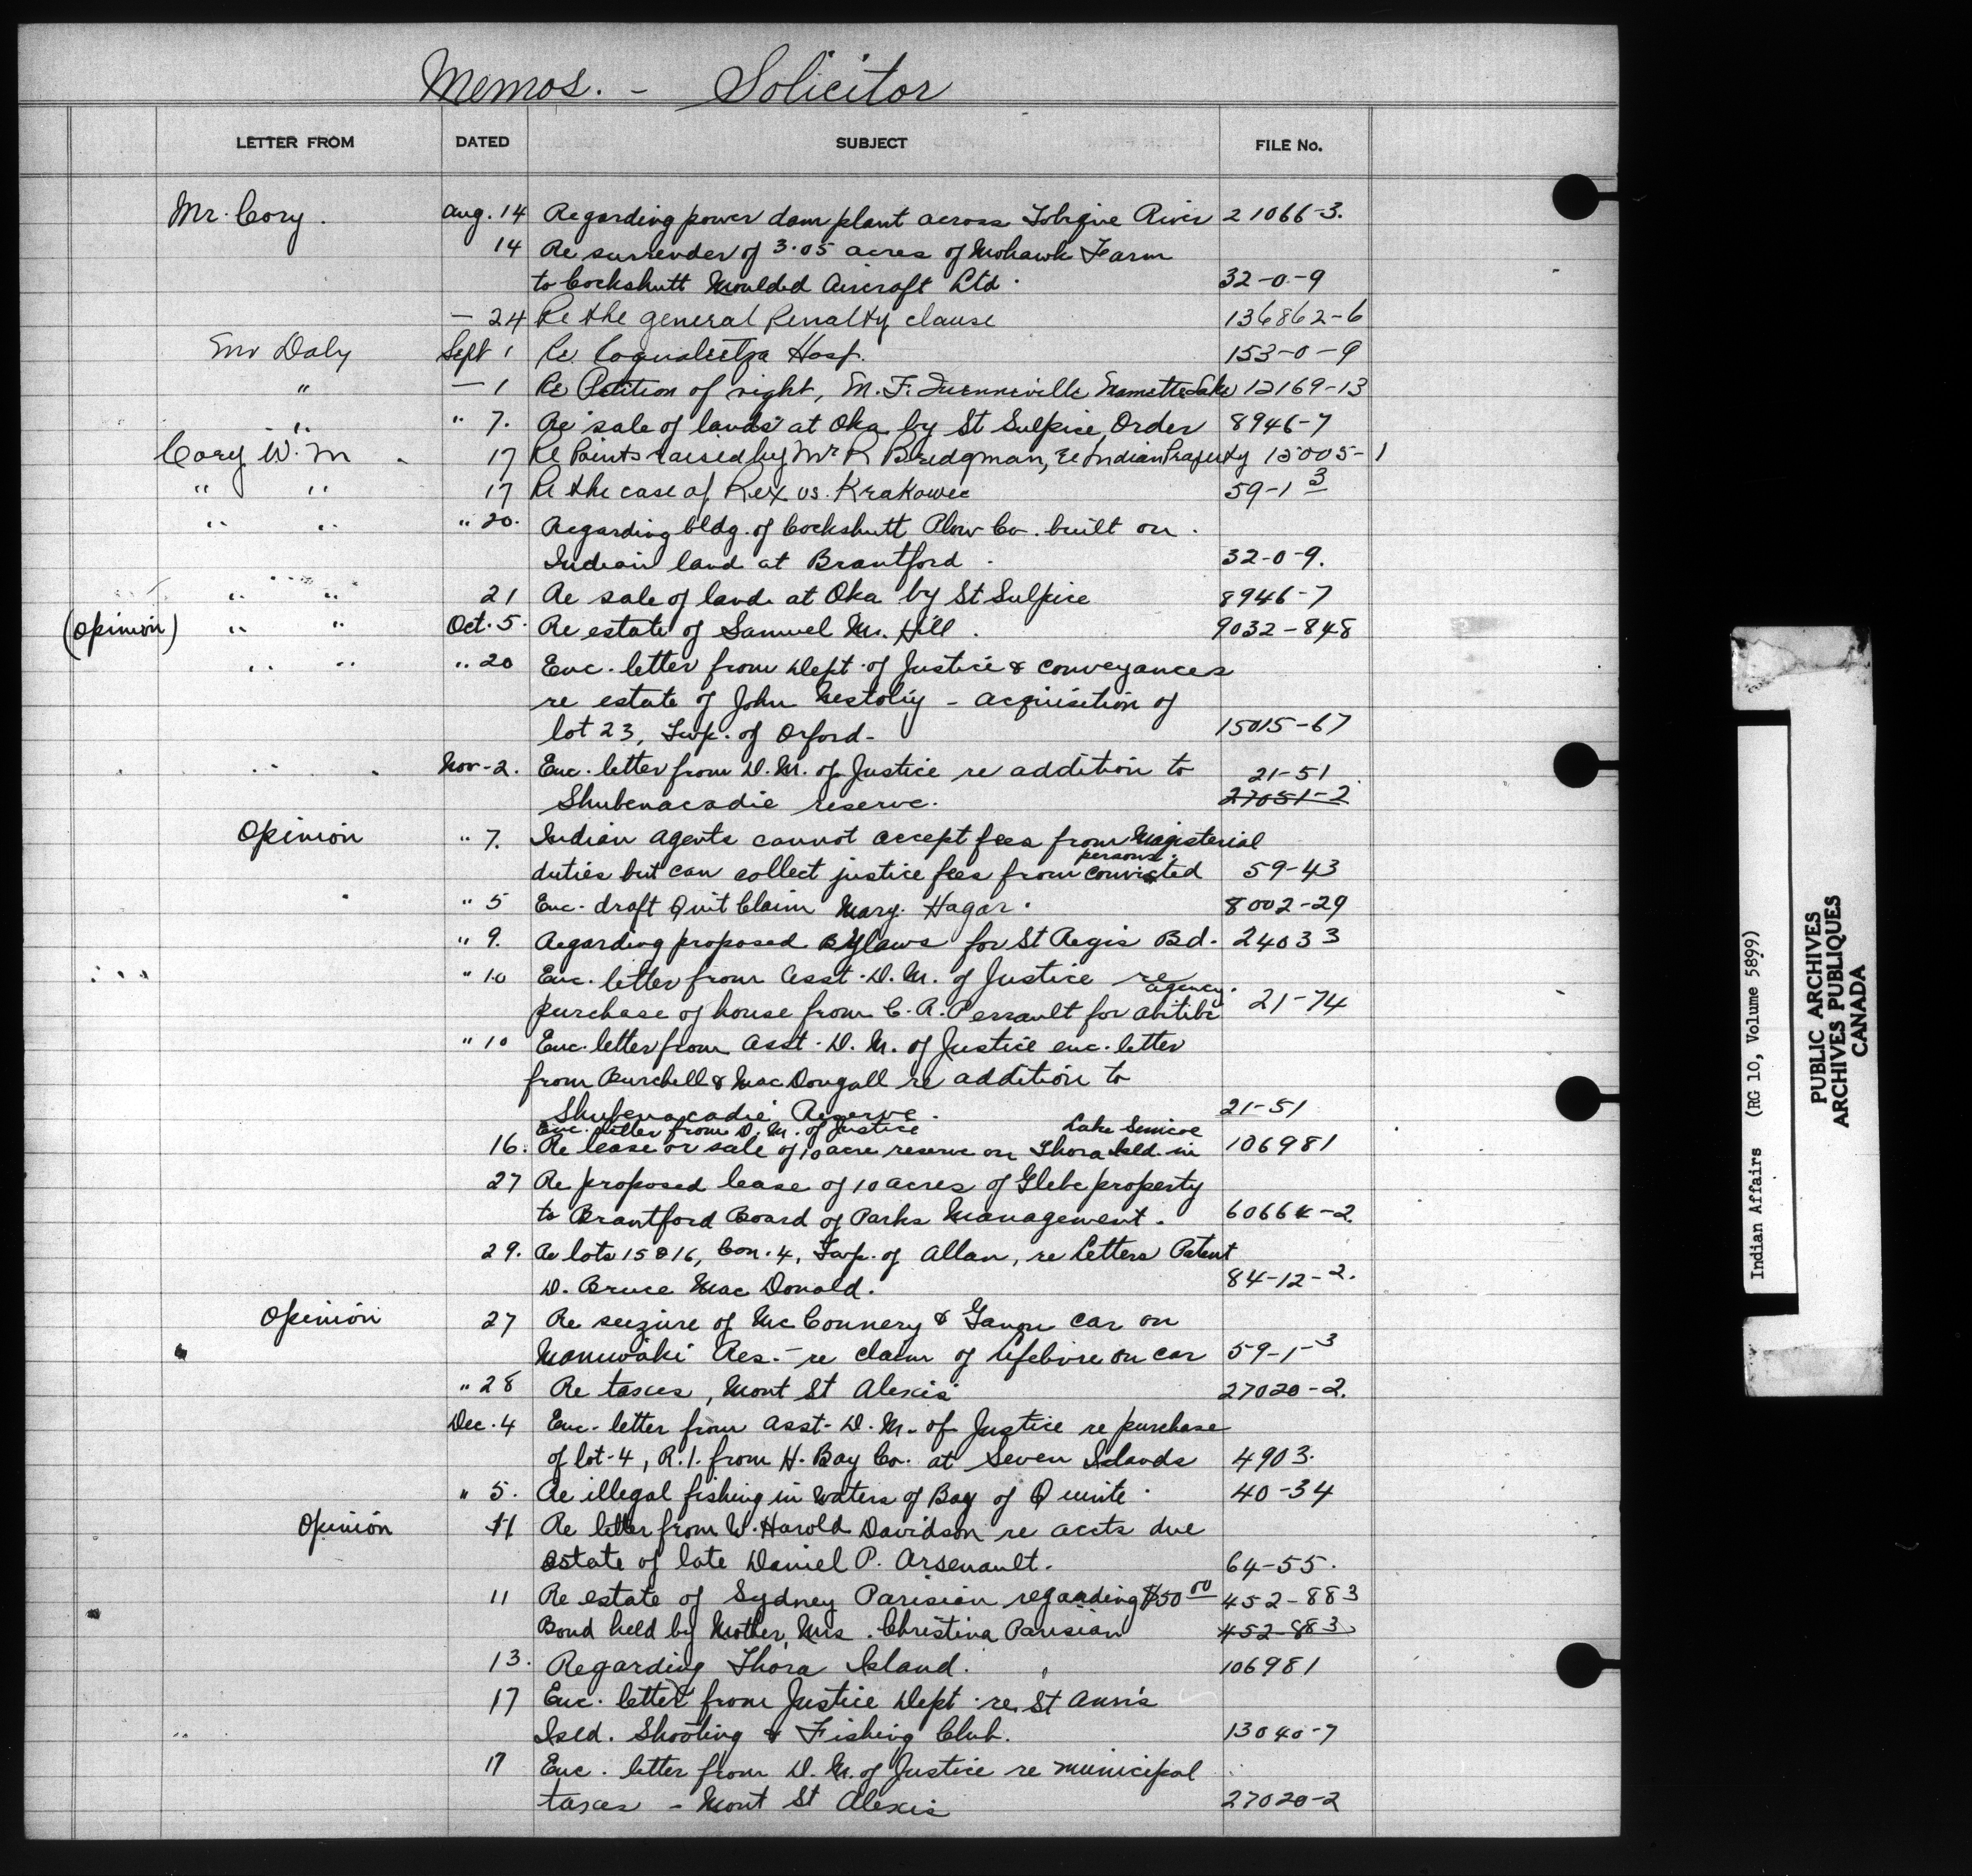 Memos. - Solicitor
LETTER FROM DATED SUBJECT FILE No.
Mr. Cory. Aug. 14 Regarding power dam plant across Tobique River 21066-3.
14 Re surrender of 3.05 acres of Mohawk Farm
to Cockshutt Moulded Aircraft Ltd. 32-0-9
- 24 Re the general Penalty clause 136862-6
Mr Daly Sept 1 Re Coqualeetza Hosp. 153-0-9
" - 1 Re Petition of right, M. F. Lake 12169-13
" " 7. Re sale of lands at Oka by St Sulpice Order 8946-7
Cory W. M. 17 Re Points raised by Mr R Bridgman, re Indian Property 15005-1
" " 17 Re the case of Rex vs. Krakowec 59-1-3
" " " 20. Regarding bldg. of Cockshutt Plow Co. built on
Indian land at Brantford. 32-0-9.
" " 21 Re sale of land at Oka by St Sulpice 8946-7
(Opinion) " " Oct. 5. Re estate of Samuel M. Hill. 9032-848
" " " 20 Enc. letter from Dept. of Justice & conveyances
re estate of John - acquisition of
lot 23, Twp. of Orford- 15015-67
" " Nov-2. Enc. letter from D. M. of Justice re addition to 21-51
Shubenacadie reserve. 27051-2
Opinion " 7. Indian Agents cannot accept fees from Magisterial
persons.
duties but can collect justice fees from convicted 59-43
" 5 Enc. draft Quit Claim Mary Hagar. 8002-29
" 9. Regarding proposed Bylaws for St Regis Bd. 24033
" 10 Enc. letter from Asst. D. M. of Justice re
agency.
purchase of house from C. A. Perrault for Abitibi 21-74
" 10 Enc. letter from Asst. D. M. of Justice enc. letter
from Burchell & MacDougall re addition to
Shubenacadie Reserve. 21-51
Enc. letter from D. M. of Justice Lake Simcoe
16. Re lease or sale of 10 acre reserve on Thora Isld. in 106981
27 Re proposed lease of 10 acres of Glebe property
to Brantford Board of Parks Management. 6066K-2.
29. Re lots 15 & 16, Con. 4, Twp. of Allan, re Letters Patent
D. Bruce MacDonald. 84-12-2.
Opinion 27 Re seizure of McConnery & Ganon car on
" Maniwaki Res. - re claim of Lefebvre on car 59-1-3
" 28 Re taxes, Mont St Alexis 27020-2.
Dec. 4 Enc. letter from Asst. D. M. of Justice re purchase
of lot-4, R.1. from H. Bay Co. at Seven Islands 4903.
" 5. Re illegal fishing in waters of Bay of Quinte. 40-34
Opinion 11 Re letter from W. Harold Davidson re accts due
estate of late Daniel P. Arsenault. 64-55.
11 Re estate of Sydney Parisian regarding $50 00 452-883
Bond held by Mother, Mrs. Christina Parisian 452-883
13. Regarding Thora Island. 106981
17 Enc. letter from Justice Dept. re St Ann's
Isld. Shooting & Fishing Club. 13040-7
17 Enc. letter from D. M. of Justice re municipal
taxes - Mont St Alexis 27020-2
Indian Affairs (RG 10, Volume 5899)
PUBLIC ARCHIVES
ARCHIVES PUBLIQUES
CANADA